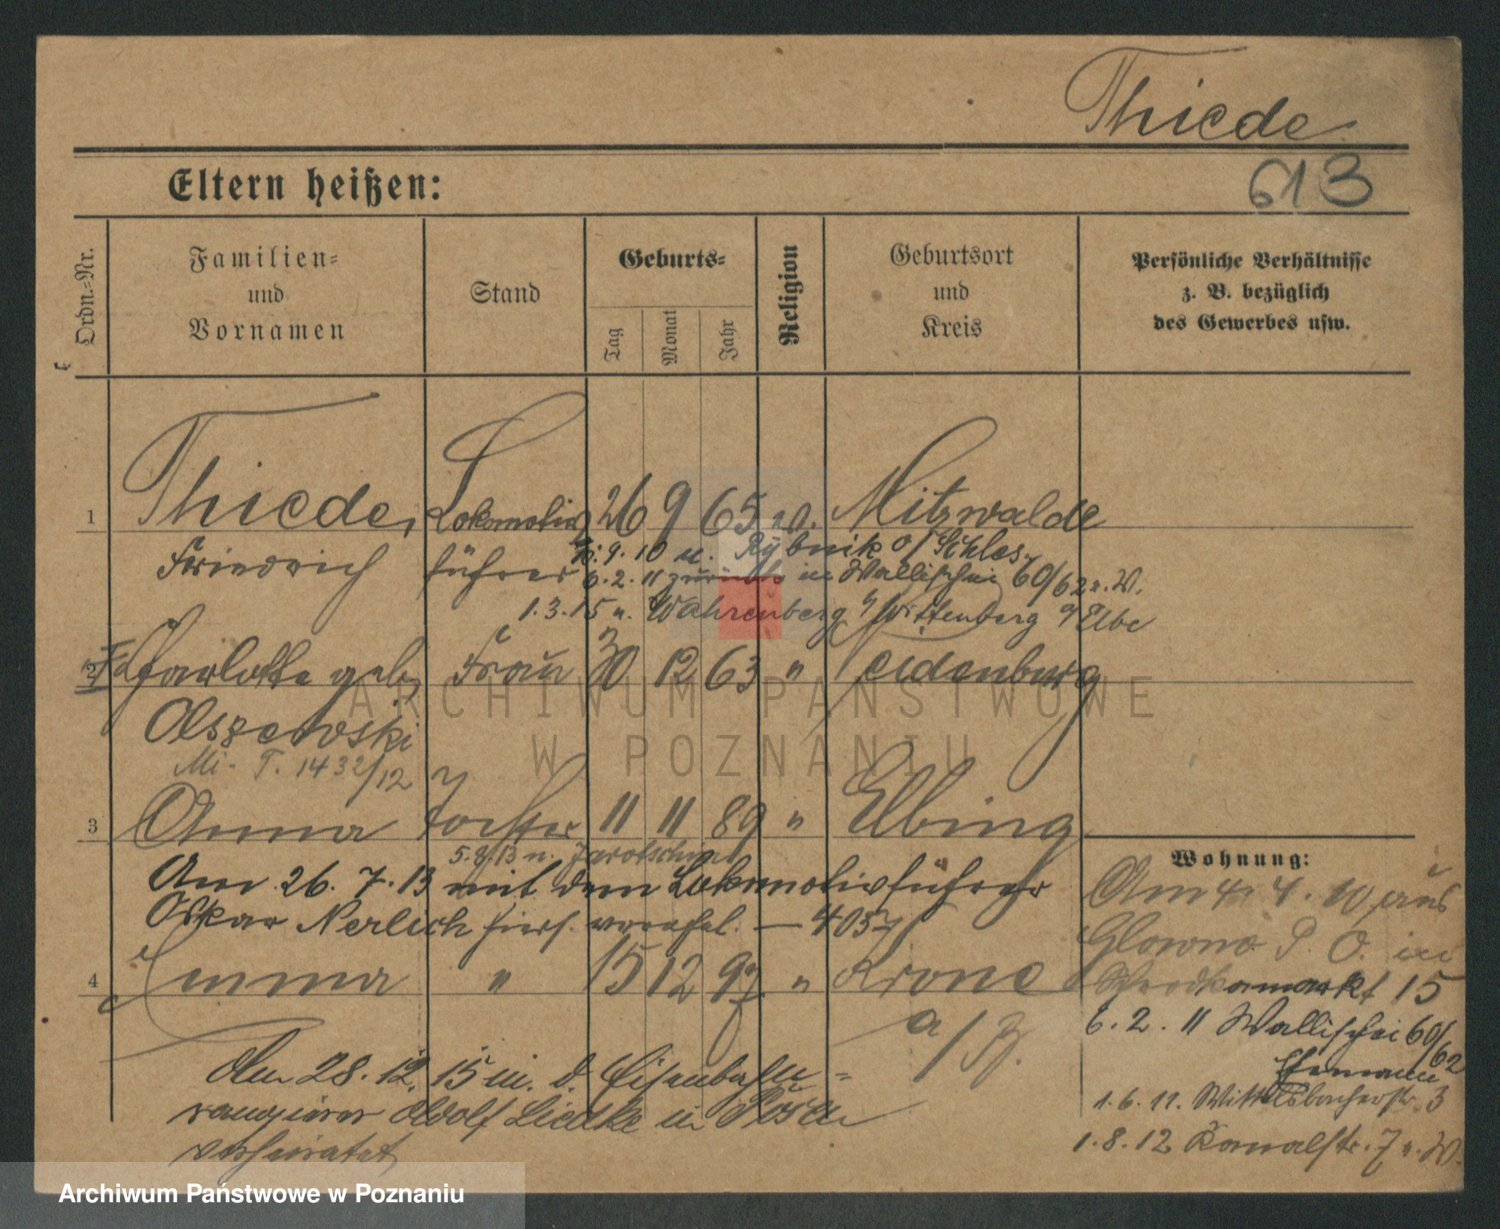 Thiede
613
Eltern heißen:
Ordn.-Nr.
Familien-
und
Vornamen
Stand
Geburts-
Tag
Monat
Jahr
Religion
Geburtsort
und
Kreis
Persönliche Verhältnisse
z. B. bezüglich
des Gewerbes usw.
1 Thiede, Lokomotiv 26 9 65 Mitzwalde
Friedrich führer
9. 10 n. Rybnik o/Schles.
6. 2. 11 zurück in Wallischei 60/62 n. W.
1. 3. 15 n. Wahrenberg b/Wittenberg a/Elbe
2 Charlotte geb. Frau 30 12 63 " Neidenburg
Olszewski
Mi- T. 1432/12
3 Anna Tochter 11 11 89 " Elbing
5. 8. 13 n. Jarotschin
Am 26. 7. 13 mit dem Lokomotivführer
Oskar Nerlich hier verehel. — 403
4 Emma " 15 12 97 " Krone
a/B.
Am 28. 12. 15 m. d. Eisenbahn-
rangierer Adolf Liedtke in Posen
verheiratet
Wohnung:
Am 4. 4. 10 aus
Glowno P. O. in
Schrodkamarkt 15
6. 2. 11 Wallischei 60/62
Ehemann
1. 6. 11. Wittelsbacherstr. 3
1. 8. 12 Kanalstr. 7 n. W.
ARCHIWUM PAŃSTWOWE
W POZNANIU
Archiwum Państwowe w Poznaniu